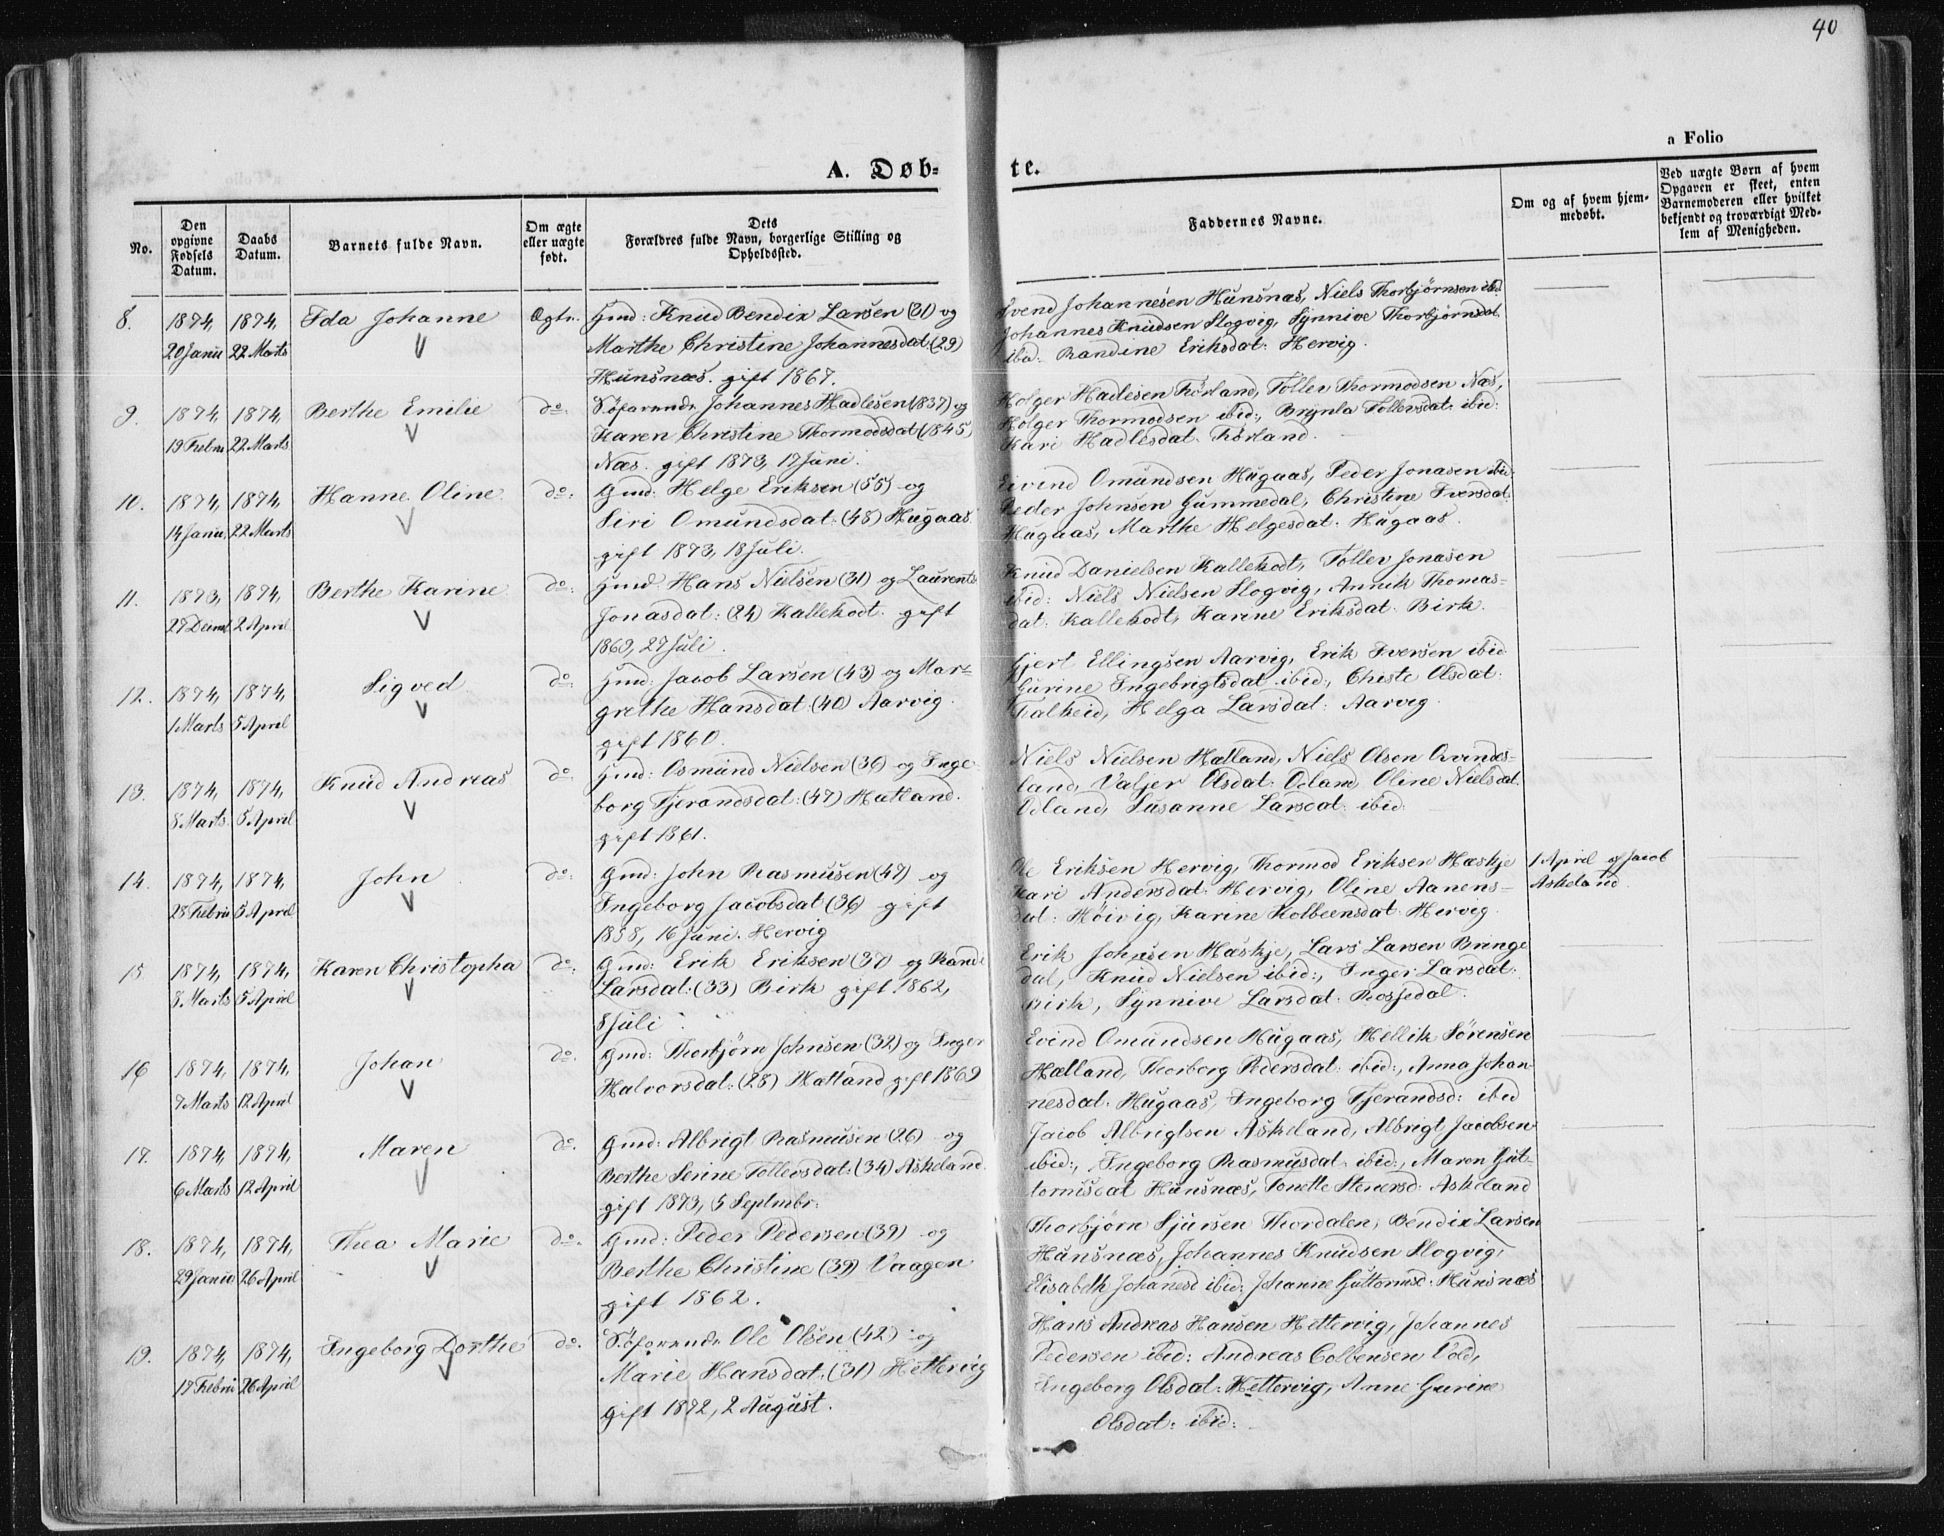 40
a Folio
A. Døb-
te.
No.
Den opgivne Fødsels Datum.
Daabs Datum.
Barnets fulde Navn.
Om ægte eller uægte født.
Dets Forældres fulde Navn, borgerlige Stilling og Opholdssted.
Faddernes Navne.
Om og af hvem hjem-
medøbt.
Ved uægte Børn af hvem
Opgaven er skeet, enten
Barnemoderen eller hvilket
bekjendt og troværdigt Med-
lem af Menigheden.
8. 1874, 20 Janu 1874, 22 Marts Ida Johanne Ægte.
Gmd: Knud Bendix Larsen (31) og
Marthe Christine Johannesdat: (29)
Hunsnæs. gift 1867.
Svend Johannesen Hunsnæs, Niels Thorbjørnsen ibd
Johannes Knudsen Slogvig, Synnive Thorbjørnsdat
ibd: Randine Eriksdat: Hervig.
9. 1874, 19 Febru 1874, 22 Marts Berthe Emilie do:
Søfarende Johannes Hadlesen (1837) og
Karen Christine Thormodsdat (1845)
Næs. gift 1873, 17 Juni.
Holger Hadlesen Førland, Tollev Thormodsen Næs,
Holger Thormodsen ibid:, Brynla Tollevsdat: ibid:
Kari Hadlesdat: Førland.
10. 1874, 14 Janu, 1874, 22 Marts Hanne Oline do:
Gmd: Helge Eriksen (55) og
Siri Omundsdat: (48) Hugaas
gift 1873, 18 Juli.
Eivind Omundsen Hugaas, Peder Jonasen ibi
Peder Johnsen Gummedal, Christine Iversdat:
Hugaas, Marthe Helgesdat: Hugaas.
11. 1873, 27 Decmb 1874, 2 April Berthe Karine do:
Gmd: Hans Nielsen (31) og Laurents
Jonasdat: (24) Kallekodt. gift
1869, 27 Juli.
Knud Danielsen Kallekodt, Tollev Jonasen
ibid: Niels Nielsen Slogvig, Annik Thomas-
dat: Kallekodt, Karine Eriksdat: Birk.
12. 1874, 1 Marts 1874, 5 April Sigved do:
Gmd: Jacob Larsen (43) og Mar-
grethe Hansdat: (40) Aarvig.
gift 1860.
Gjert Ellingsen Aarvig, Erik Iversen ibid
Gurine Ingebrigtsdat ibid:, Christe Olsdat:
Falkeid, Helga Larsdat: Aarvig.
13. 1874, 8 Marts 1874, 5 April Knud Andreas do:
Gmd: Osmund Nielsen (36) og Inge-
borg Tjerandsdat: (47) Hatland.
gift 1861.
Niels Nielsen Hætland, Niels Olsen Qvinnes-
land, Valjer Olsdat: Odland, Oline Nielsdat
Odland, Susanne Larsdat: ibid:
14. 1874, 28 Febru 1874, 5 April John do:
Gmd: John Rasmusen (47) og
Ingeborg Jacobsdat (36) gift
1858, 16 Juni. Hervig
Ole Eriksen Hervig, Thormod Eriksen Hæskje
Kari Andersdat: Hervig, Oline Aanens-
dat: Høivig, Karine Kolbeensdat: Hervig.
1 April af Jacob
Askeland.
15 1874, 8 Marts 1874, 5 April Karen Christopha do:
Gmd: Erik Eriksen (37) og Randi
Larsdat: (33) Birk gift 1862,
8 Juli.
Erik Johnsen Hæskje, Lars Larsen Bringe
dal, Knud Nielsen ibid:, Inger Larsdat:
Birk, Synnive Larsdat: Rossedal.
16 1874, 7 Marts 1874, 12 April Johan do:
Gmd: Thorbjørn Johnsen (32) og Inger
Halvorsdat: (28) Hætland gift 1869
Evind Omundsen Hugaas, Hellik Sørensen
Hælland, Thorborg Pedersdat: ibid:, Anna Johan-
nesdat. Hugaas, Ingeborg Tjerandsd: ibid
17. 1874, 6 Marts 1874, 12 April Maren do:
Gmd: Albrigt Rasmusen (26) og
Berthe Serine Tollevsdat: (34) Askeland
gift 1873, 5 Septmbr:
Jacob Albrigtsen Askeland, Albrigt Jacobsen
ibid:, Ingeborg Rasmusdat: ibid:, Maren Gut-
tormsdat Hunsnæs, Tonette Stenersd: Askeland
18. 1874, 29 Janu 1874, 26 April Thea Marie do.
Gmd: Peder Pedersen (39) og
Berthe Christine (39) Vaagen
gift 1862.
Thorbjørn Sjursen Thordalen, Bendix Larsen
Hunsnæs, Johannes Knudsen Slogvig,
Elisabeth Johanesd ibid:, Johanne Guttormsd: Hunsnæs
19. 1874, 17 Febru 1874, 26 April Ingeborg Dorthe do.
Søfarende Ole Olsen (42) og
Marie Hansdat: (31) Hettervig
gift 1872, 2 August.
Hans Andreas Hansen Hettervig, Johannes
Pedersen ibid: Andreas Colbensen Vold,
Ingeborg Olsdat: Hettervig, Anne Gurine
Olsdat: ibid: